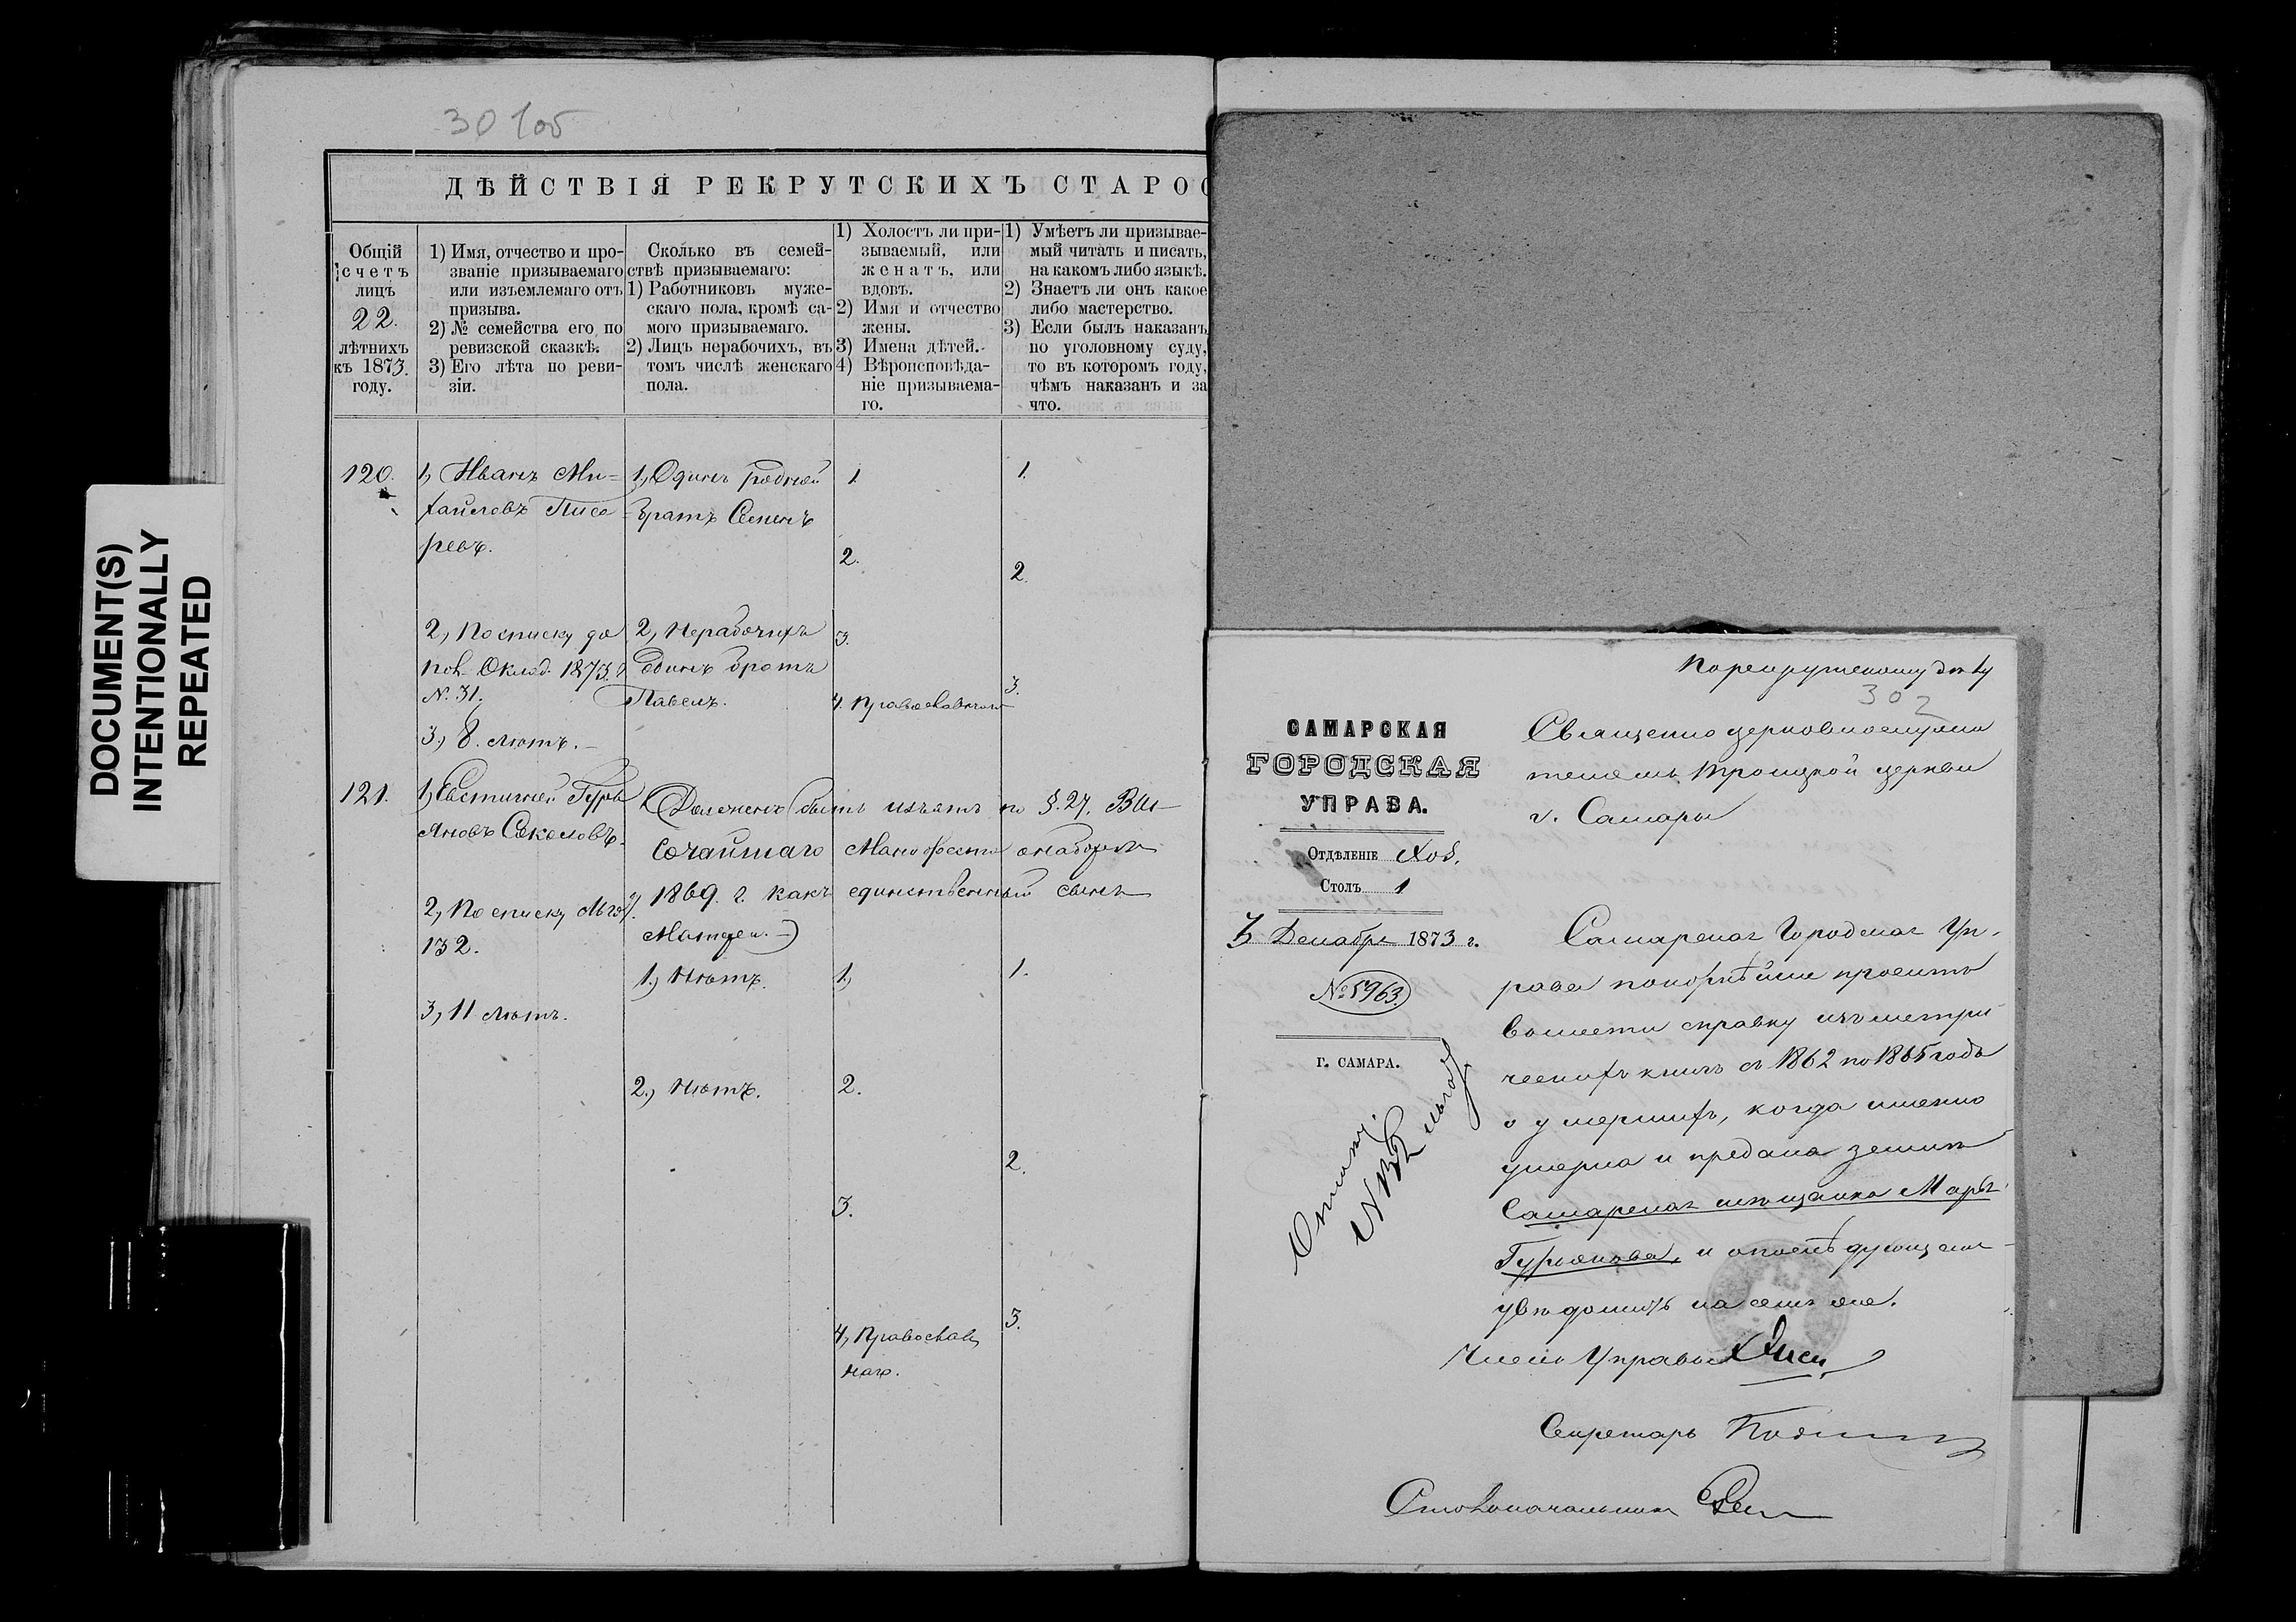 DOCUMENT(S)
INTENTIONALLY
REPEATED
301об
ДѢЙСТВІЯ РЕКРУТСКИХЪ СТАРОС
Общій
счетъ
лицъ
22.
лѣтнихъ
къ 1873.
году.
1) Имя, отчество и про-
званіе призываемаго
или изъемлемаго отъ
призыва.
2) № семейства его по
ревизской сказкѣ.
3) Его лѣта по реви-
зіи.
Сколько въ семей-
ствѣ призываемаго:
1) Работниковъ муже-
скаго пола, кромѣ са-
мого призываемаго.
2) Лицъ нерабочихъ, въ
томъ числѣ женскаго
пола.
1) Холостъ ли при-
зываемый, или
женатъ, или
вдовъ.
2) Имя и отчество
жены.
3) Имена дѣтей.
4) Вѣроисповѣда-
ніе призываема-
го.
1) Умѣетъ ли призывае-
мый читать и писать,
на какомъ либо языкѣ.
2) Знаетъ ли онъ какое
либо мастерство.
3) Если былъ наказанъ
по уголовному суду,
то въ которомъ году,
чѣмъ наказанъ и за
что.
120.
1, Иванъ Ми=
хайловъ Писа
ревъ.
2, По списку до
пол. Оклад. 1873. г
№. 31.
3, 8. лѣтъ.
1, Одинъ родной
братъ Семенъ
2, Нерабочихъ
одинъ братъ
Павелъ.
1.
2.
3.
4. Православнаго
1.
2.
3.
121.
1, Евстигней Гурь
яновъ Соколовъ.
2, По списку
132.
3, 11 лѣтъ.
(Долженъ быть изъятъ по §. 27. Вы
сочайшаго Манифеста о наборѣ
1869. г. какъ единственный сынъ
Матери.)
1, Нѣтъ.
2, Нѣтъ.
1,
2.
3.
4, Православ
наго.
1.
2.
3.
По рекрутскому дѣлу
302
САМАРСКАЯ
ГОРОДСКАЯ
УПРАВА.
Отдѣленіе Хоз.
Столъ 1
Декабря 1873 г.
№ 5963.
Г. САМАРА.
Священно церковно служи
телямъ Троицкой церкви
г. Самары
Самарская Городская Уп-
рава покорнѣйше проситъ
вывести справку изъ метри
ческихъ книгъ съ 1862 по 1865 годъ
о умершихъ, когда именно
умерла и предана землѣ
Самарская мѣщанка Марья
Гурьянова, и о послѣдующемъ
увѣдомить на семъ же.
Членъ Управы
Секретарь
Столоначальникъ